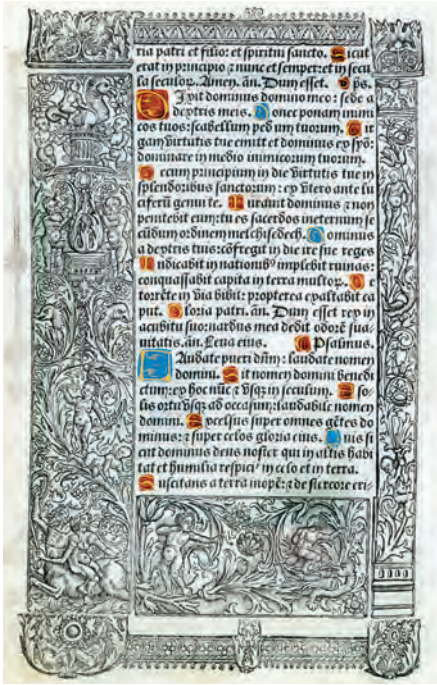 ria patri et filio: et spiritui sancto. Sicut
erat in principio ⁊ nunc et semper: et in secu
la seculoꝝ. Amen. añ. Dum esset. ps.
Dixit dominus domino meo: sede a
dextris meis. Donec ponam inimi
cos tuos: scabellum pedum tuorum. Uir
gam virtutis tue emittet dominus ex syō:
dominare in medio inimicorum tuorum.
Tecum principium in die virtutis tue in
splendoribus sanctorum: ex vtero ante lu
ciferū genui te. Iurauit dominus ⁊ non
penitebit eum: tu es sacerdos in eternum se
cūdum ordinem melchisedech. Dominus
a dextris tuis: cōfregit in die ire sue reges
Iudicabit in nationibꝰ implebit ruinas:
conquassabit capita in terra multoꝝ. De
torrēte in via bibit: propterea exaltabit ca
put. Gloria patri. añ. Dum esset rex in
acubitu suo: nardus mea dedit odorē sua
uitatis. añ. Leua eius. Psalmus.
Laudate pueri dn̄m: laudate nomen
domini. Sit nomen domini benedi
ctum: ex hoc nūc ⁊ vsqꝫ in seculum. A so
lis ortu vsqꝫ ad occasum: laudabile nomen
domini. Excelsus super omnes gētes do
minus: ⁊ super celos gloria eius. Quis si
cut dominus deus noster qui in altis habi
tat et humilia respicit in celo et in terra.
Suscitans a terra inopē: ⁊ de stercore eri-